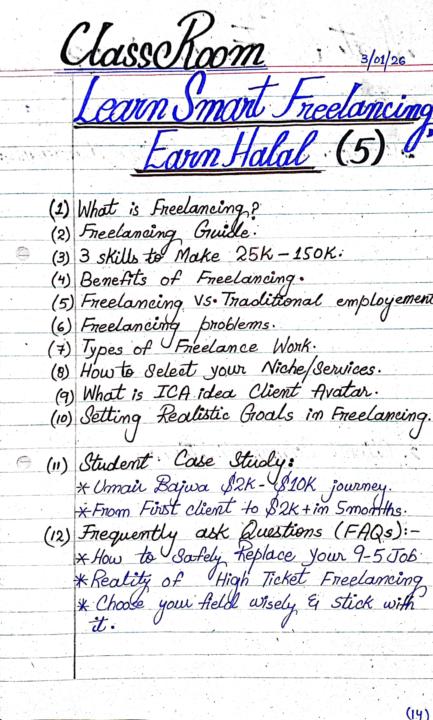 ClassRoom
3/01/26
Learn Smart Freelancing,
Earn Halal (5)
(1) What is Freelancing?
(2) Freelancing Guide.
(3) 3 skills to Make 25K-150K.
(4) Benefits of Freelancing.
(5) Freelancing Vs. Traditional employement
(6) Freelancing problems.
(7) Types of Freelance Work.
(8) How to Select your Niche/Services.
(9) What is ICA idea Client Avatar.
(10) Setting Realistic Goals in Freelancing.
(11) Student Case Study:
* Umair Bajwa $2K-$10K journey.
* From First client to $2K+ in 5months.
(12) Frequently ask Questions (FAQs):-
* How to Safely Replace your 9-5 Job
* Reality of High Ticket Freelancing
* Choose your field wisely & stick with
it.
(14)